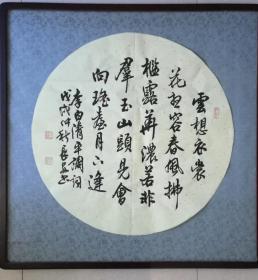 雲想衣裳
花想容春風拂
檻露華濃若非
羣玉山頭見會
向瑤臺月下逢
李白清平調詞
戊戌仲秋